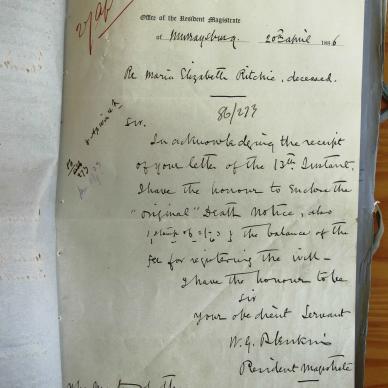 Office of the Resident Magistrate
of Murraysburg. 20th April 1886
Re Maria Elizabeth Ritchie, deceased.
86/273
Sir.
In acknowledging the receipt
of your letter of the 13th Instant,
I have the honour to Enclose the
"original" Death Notice, also
the balance of the
fee for registering the will –
I have the honour to be
Sir
Your obedient Servant
W. G.
Resident Magistrate